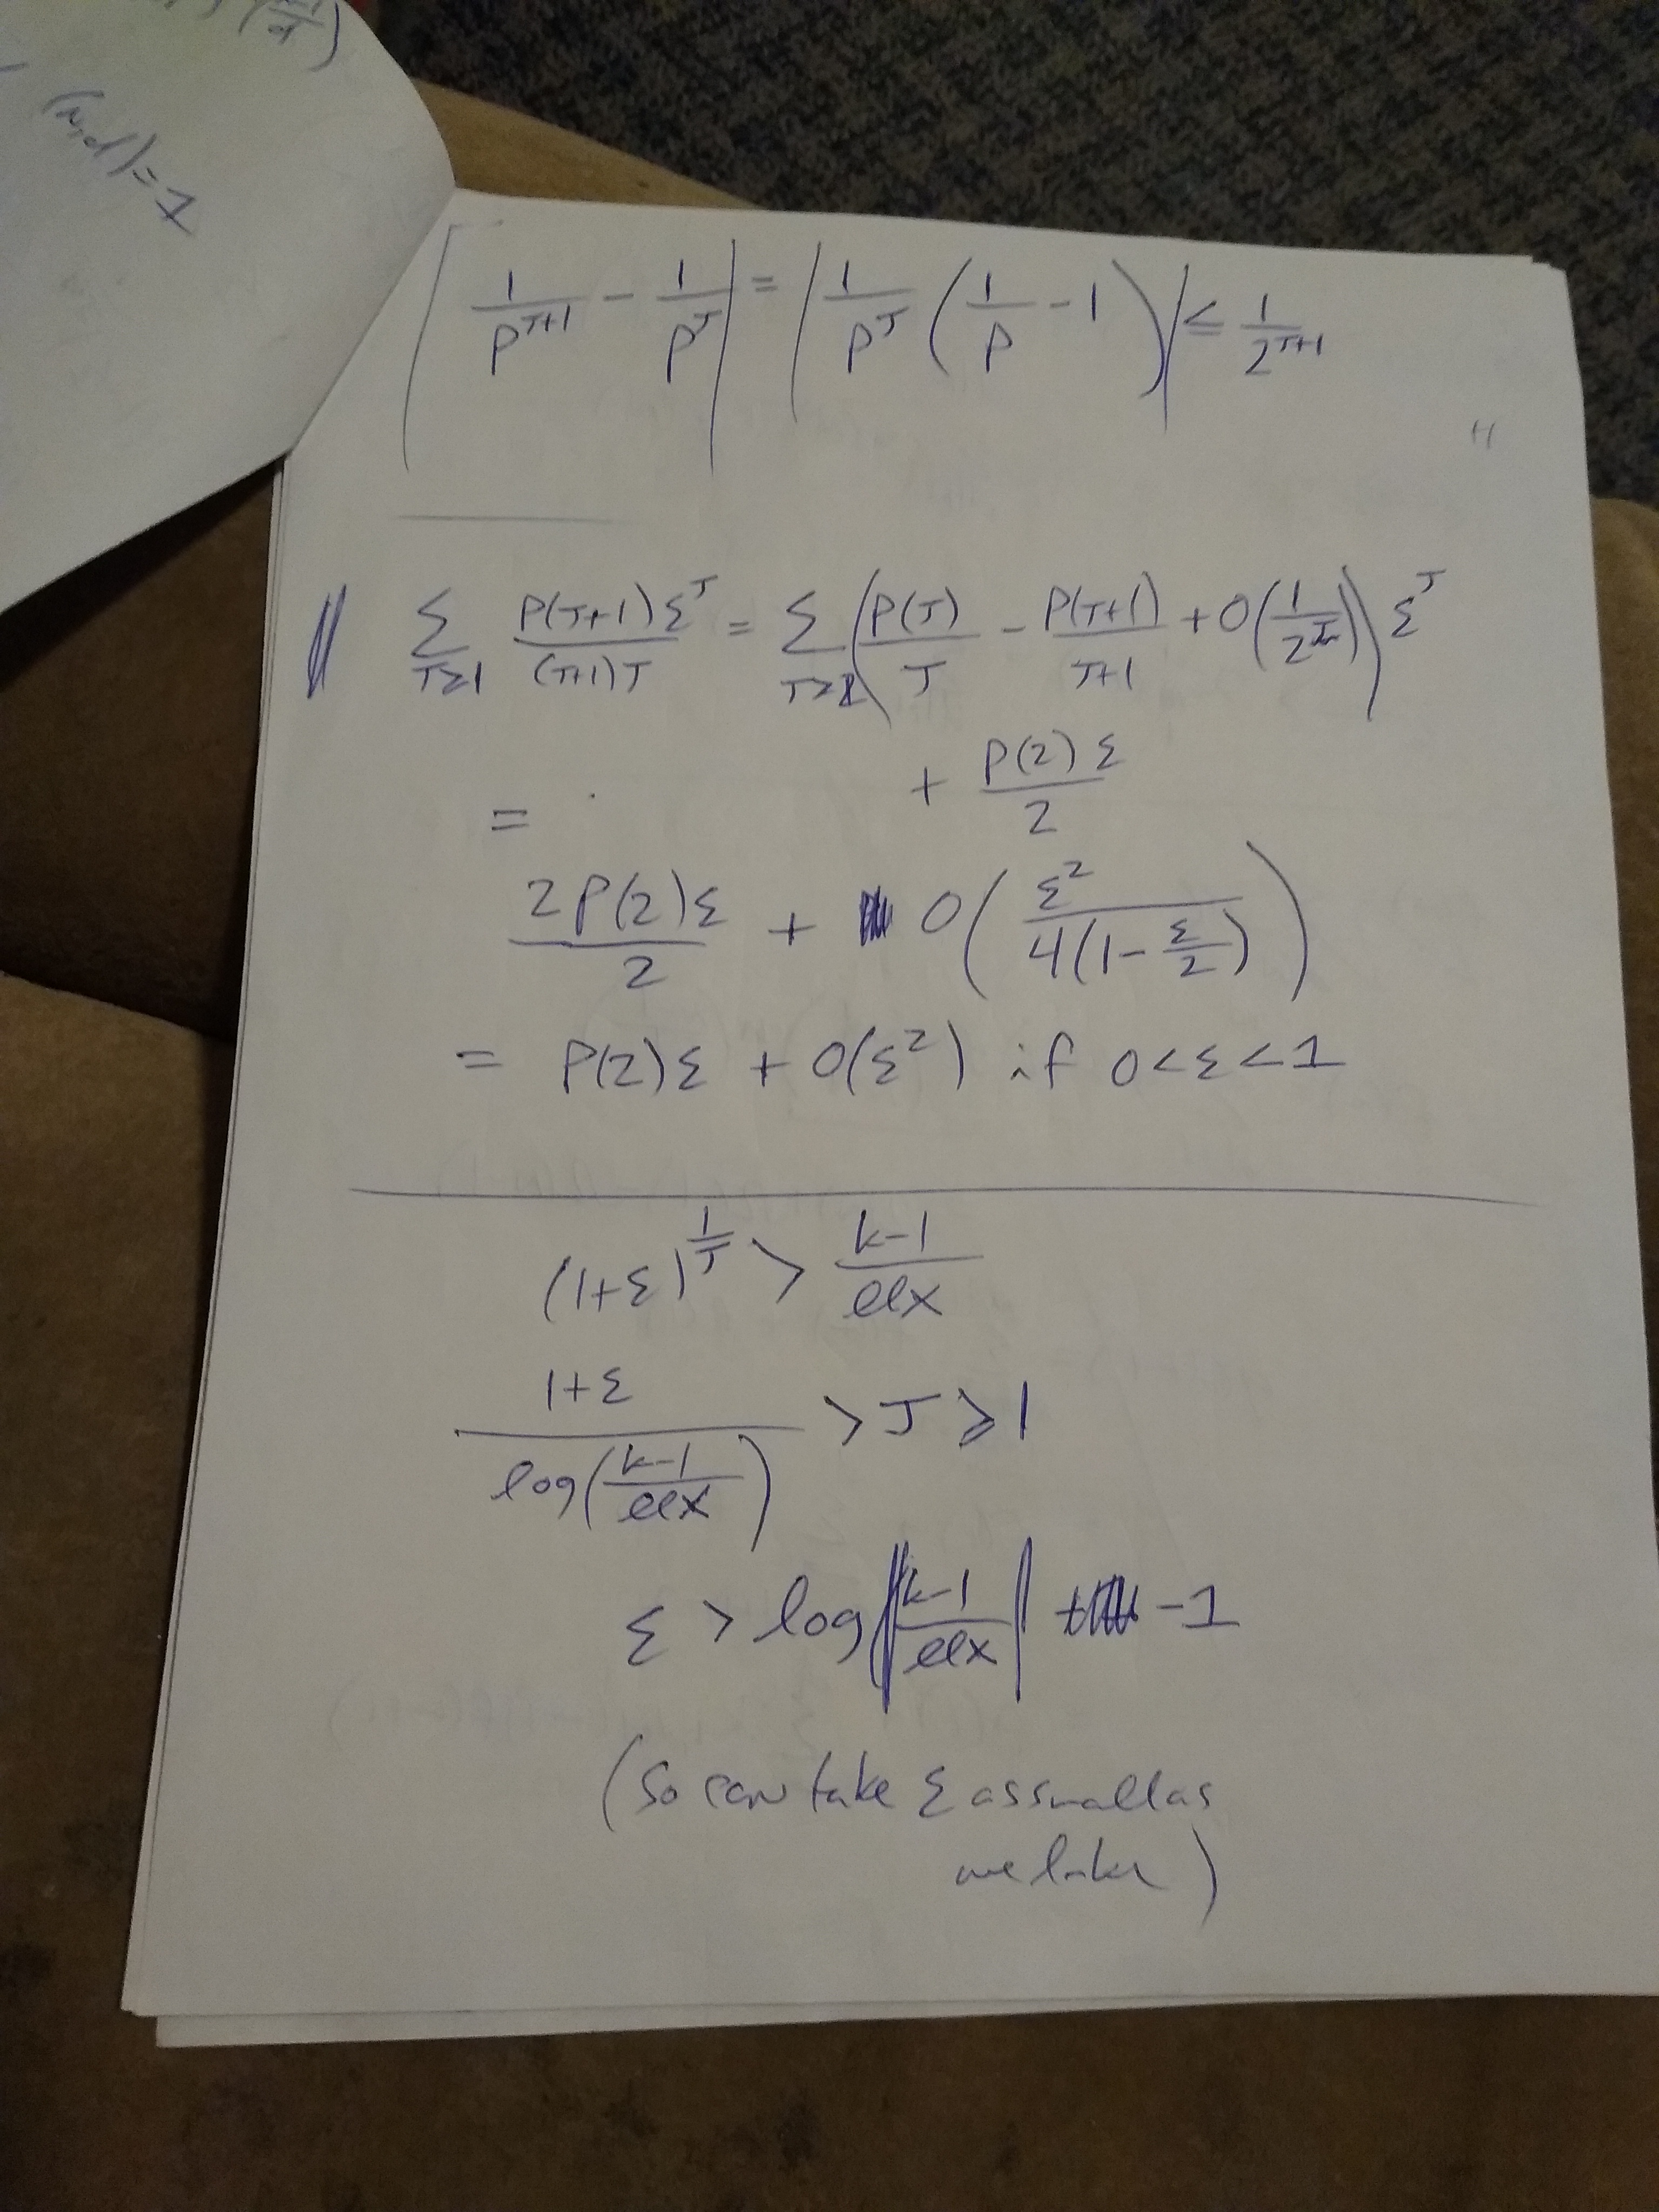 (n,d)=1
| 1/p^{J+1} - 1/p^J | = | 1/p^J ( 1/p - 1 ) | ≤ 1/2^{J+1}
Σ_{J≥1} P(J+1)ε^J/((J+1)J) = Σ_{J≥2} ( P(J)/J - P(J+1)/(J+1) + O(1/2^J) ) ε^J
+ P(2)ε/2
=
2P(2)ε/2 + O( ε²/(4(1-ε/2)) )
= P(2)ε + O(ε²) if 0<ε<1
(1+ε)^{1/J} > (k-1)/ℓℓx
(1+ε)/log((k-1)/ℓℓx) > J ≥ 1
ε > log|(k-1)/ℓℓx| -1
(So can take ε as small as
we like)